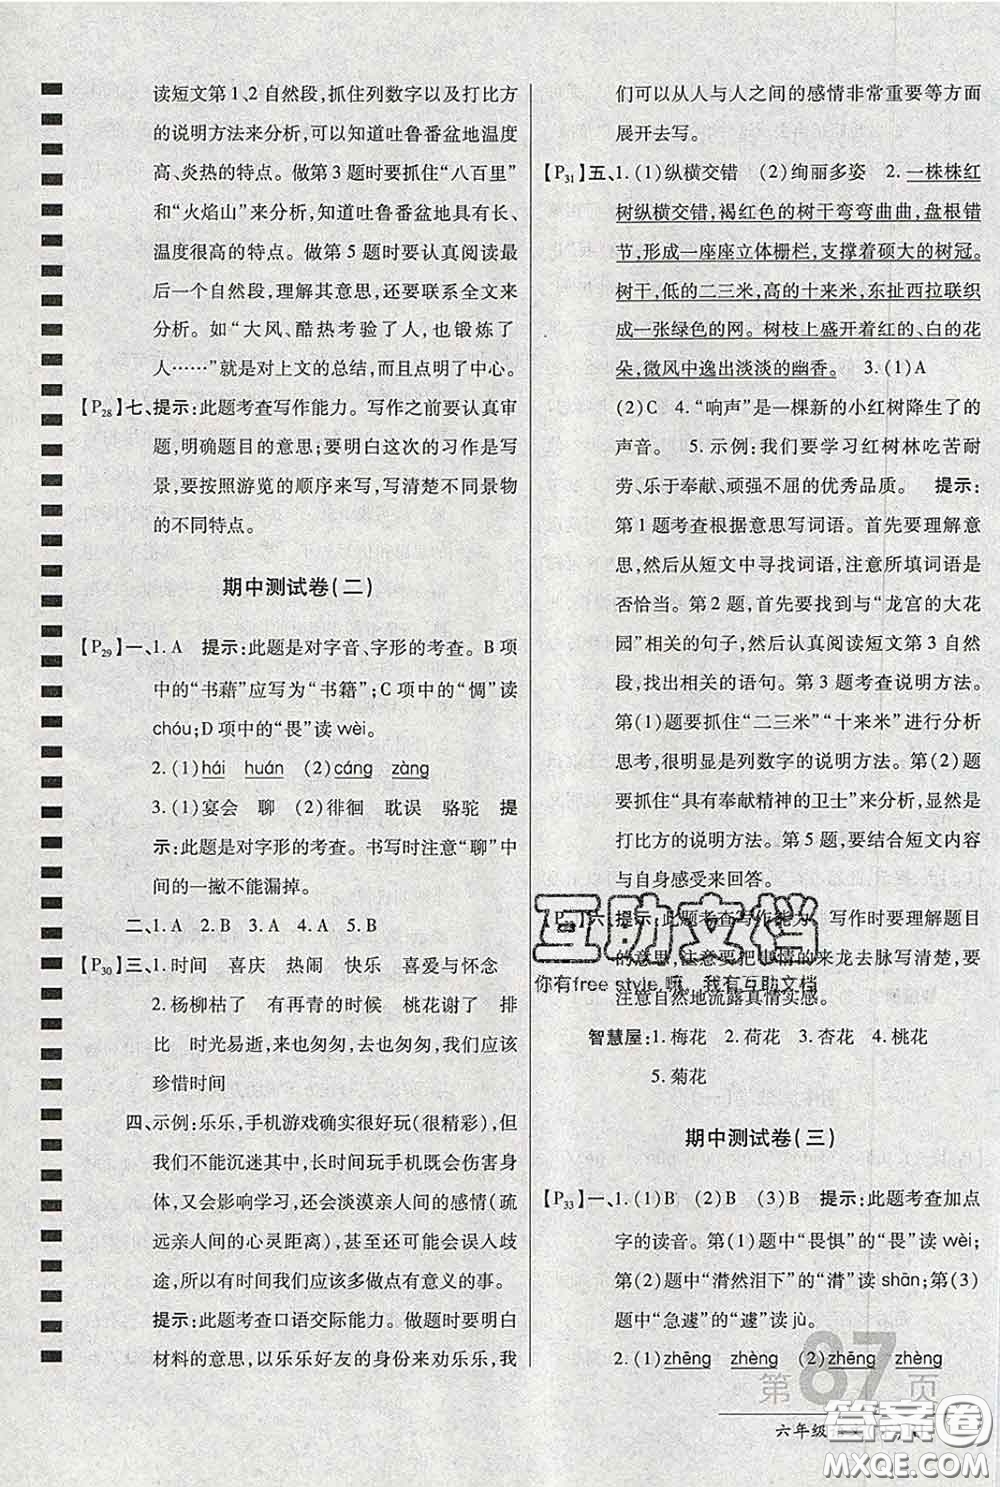 读短文第1、2自然段,抓住列数字以及打比方
的说明方法来分析,可以知道吐鲁番盆地温度
高、炎热的特点。做第3题时要抓住“八百里”
和“火焰山”来分析,知道吐鲁番盆地具有长、
温度很高的特点。做第5题时要认真阅读最
后一个自然段,理解其意思,还要联系全文来
分析。如“大风、酷热考验了人,也锻炼了
人……”就是对上文的总结,而且点明了中心。
【P28】七、提示:此题考查写作能力。写作之前要认真审
题,明确题目的意思;要明白这次的习作是写
景,要按照游览的顺序来写,写清楚不同景物
的不同特点。
期中测试卷(二)
【P29】一、1. A 提示:此题是对字音、字形的考查。B项
中的“书藉”应写为“书籍”;C项中的“惆”读
chóu;D项中的“畏”读wèi。
2. (1)hái huán (2)cáng zàng
3. (1)宴会 聊 (2)徘徊 耽误 骆驼 提
示:此题是对字形的考查。书写时注意“聊”中
间的一撇不能漏掉。
二、1. A 2. B 3. A 4. A 5. B
【P30】三、1. 时间 喜庆 热闹 快乐 喜爱与怀念
2. 杨柳枯了 有再青的时候 桃花谢了 排
比 时光易逝,来也匆匆,去也匆匆,我们应该
珍惜时间
四、示例:乐乐,手机游戏确实很好玩(很精彩),但
我们不能沉迷其中,长时间玩手机既会伤害身
体,又会影响学习,还会淡漠亲人间的感情(疏
远亲人间的心灵距离),甚至可能会误入歧
途,所以有时间我们应该多做点有意义的事。
提示:此题考查口语交际能力。做题时要明白
材料的意思,以乐乐好友的身份来劝乐乐,我
们可以从人与人之间的感情非常重要等方面
展开去写。
【P31】五、1. (1)纵横交错 (2)绚丽多姿 2. 一株株红
树纵横交错,褐红色的树干弯弯曲曲,盘根错
节,形成一座座立体栅栏,支撑着硕大的树冠。
树干,低的二三米,高的十来米,东扯西拉联织
成一张绿色的网。树枝上盛开着红的、白的花
朵,微风中逸出淡淡的幽香。 3. (1)A
(2)C 4. “响声”是一棵新的小红树降生了的
声音。 5. 示例:我们要学习红树林吃苦耐
劳、乐于奉献、顽强不屈的优秀品质。 提示:
第1题考查根据意思写词语。首先要理解意
思,然后从短文中寻找词语,注意所填词语是
否恰当。第2题,首先要找到与“龙宫的大花
园”相关的句子,然后认真阅读短文第3自然
段,找出相关的语句。第3题考查说明方法。
第(1)题要抓住“二三米”“十来米”进行分析
思考,很显然是列数字的说明方法。第(2)题
要抓住“具有奉献精神的卫士”来分析,显然是
打比方的说明方法。第5题,要结合短文内容
与自身感受来回答。
六、提示:此题考查写作能力。写作时要理解题目
的意思,注意要把事情的来龙去脉写清楚,要
注意自然地流露真情实感。
互助文档
你有free style嘛,我有互助文档
智慧屋:1. 梅花 2. 荷花 3. 杏花 4. 桃花
5. 菊花
期中测试卷(三)
【P33】一、1. (1)B (2)B (3)B 提示:此题考查加点
字的读音。第(1)题中“畏惧”的“畏”读wèi;
第(2)题中“潸然泪下”的“潸”读shān;第(3)
题中“急遽”的“遽”读jù。
2. (1)zhēng zhèng (2)zhēng zhèng
第87页
六年级
答案圈
MXQE.COM